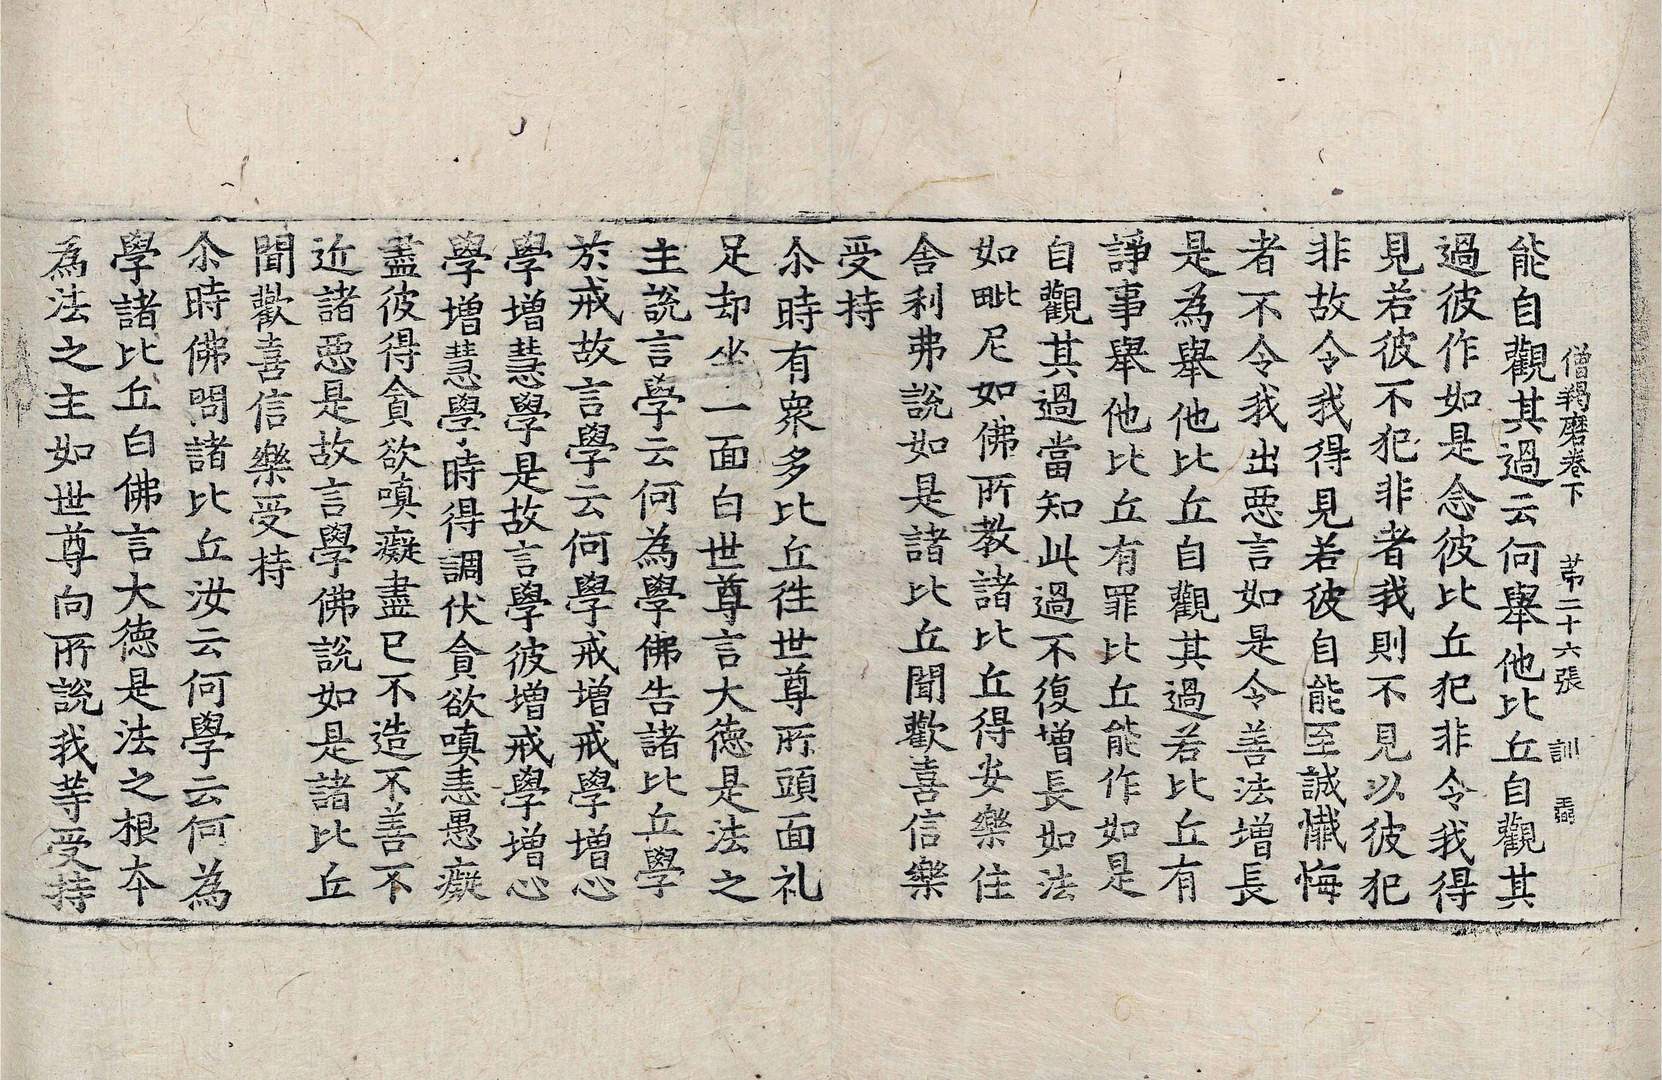 僧羯磨卷下　苐二十六張　訓
能自觀其過云何舉他比丘自觀其
過彼作如是念彼比丘犯非令我得
見若彼不犯非者我則不見以彼犯
非故令我得見若彼自能至誠懺悔
者不令我出惡言如是令善法增長
是為舉他比丘自觀其過若比丘有
諍事舉他比丘有罪比丘能作如是
自觀其過當知此過不復增長如法
如毗尼如佛所教諸比丘得安樂住
舍利弗說如是諸比丘聞歡喜信樂
受持
尒時有衆多比丘徃世尊所頭面礼
足却坐一面白世尊言大德是法之
主說言學云何為學佛告諸比丘學
於戒故言學云何學戒增戒學增心
學增慧學是故言學彼增戒學增心
學增慧學時得調伏貪欲嗔恚愚癡
盡彼得貪欲嗔癡盡已不造不善不
近諸惡是故言學佛說如是諸比丘
聞歡喜信樂受持
尒時佛問諸比丘汝云何學云何為
學諸比丘白佛言大德是法之根本
為法之主如世尊向所說我等受持